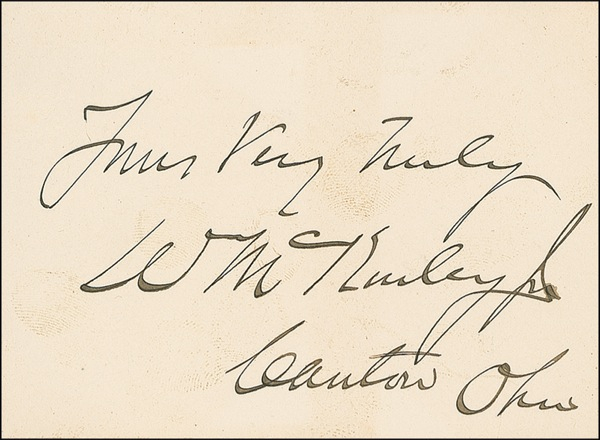 Yours Very Truly
W McKinley Jr
Canton Ohio